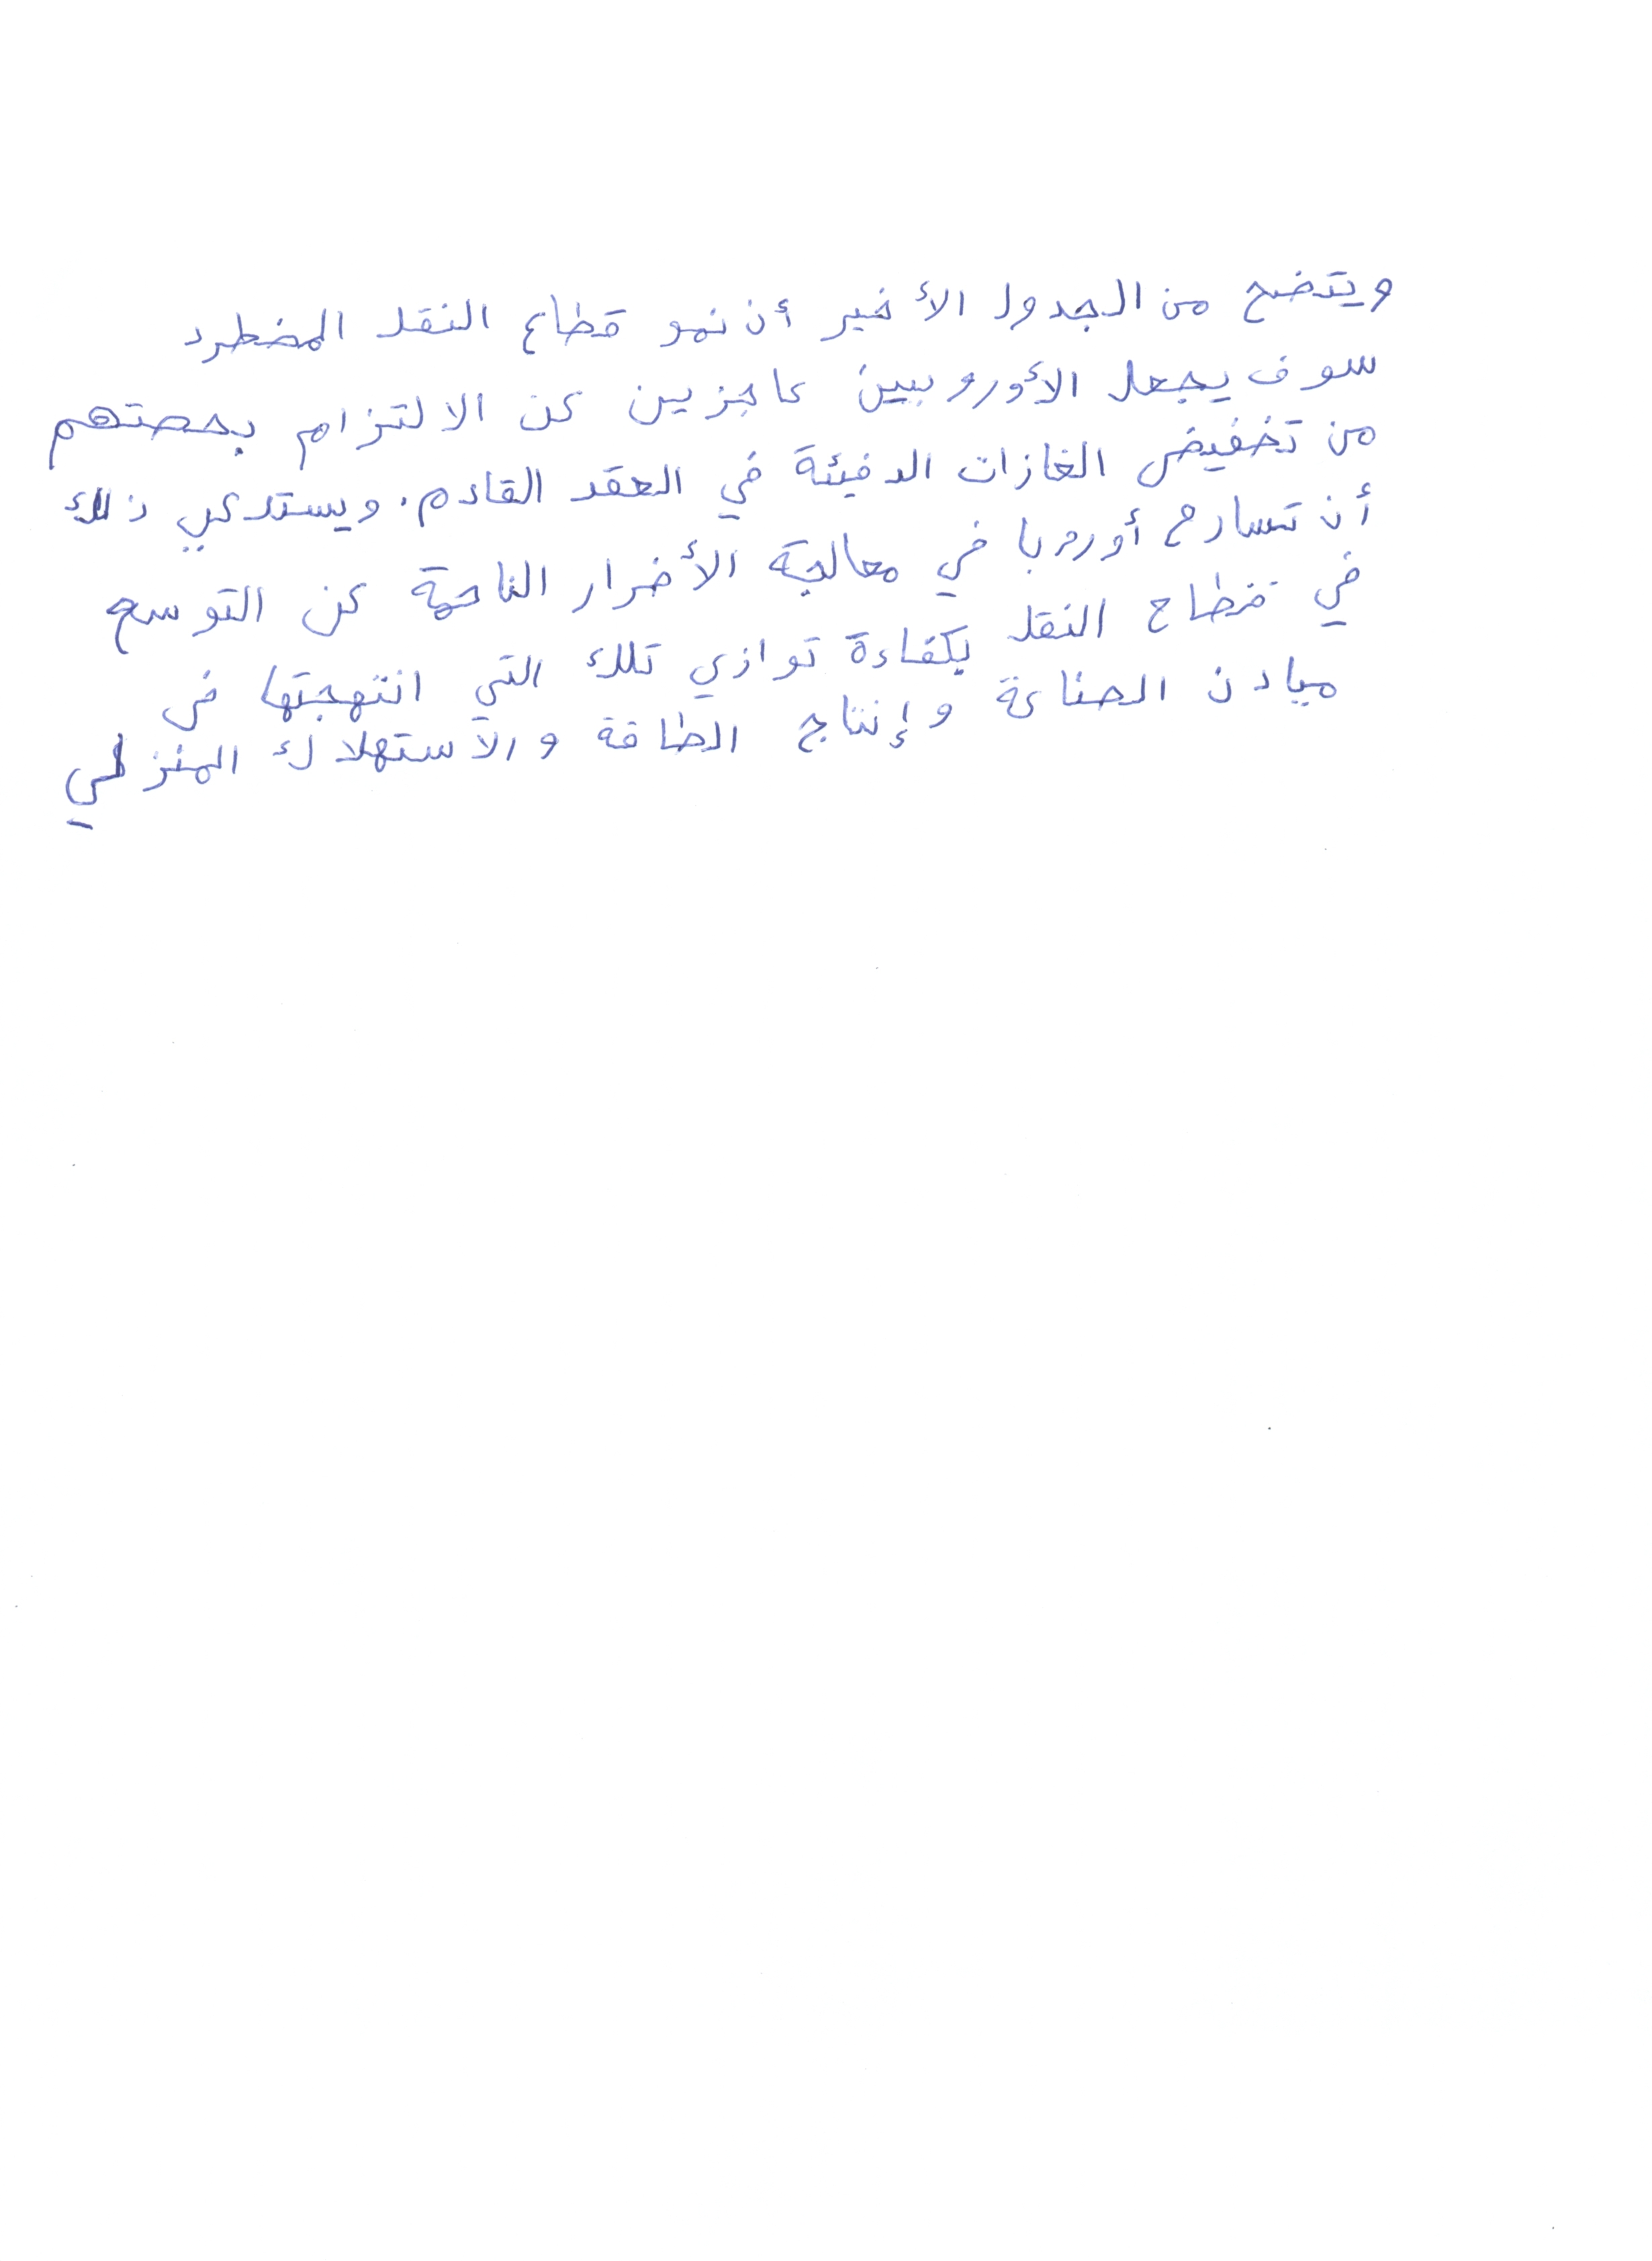 ويتضح من الجدول الأخير أن نمو قطاع النقد المضطرد
سوف يجعل الأوروبيين عاجزين عن الالتزام بحصتهم
من تخفيض الغازات الدفيئة في العقد القادم. ويستدعي ذلك
أن تسارع أوروبا في معالجة الأضرار الناجمة عن التوسع
في قطاع النقد بكفاءة توازي تلك التي انتهجتها في
ميادن الصناعة وإنتاج الطاقة والأستهلاك المنزلي